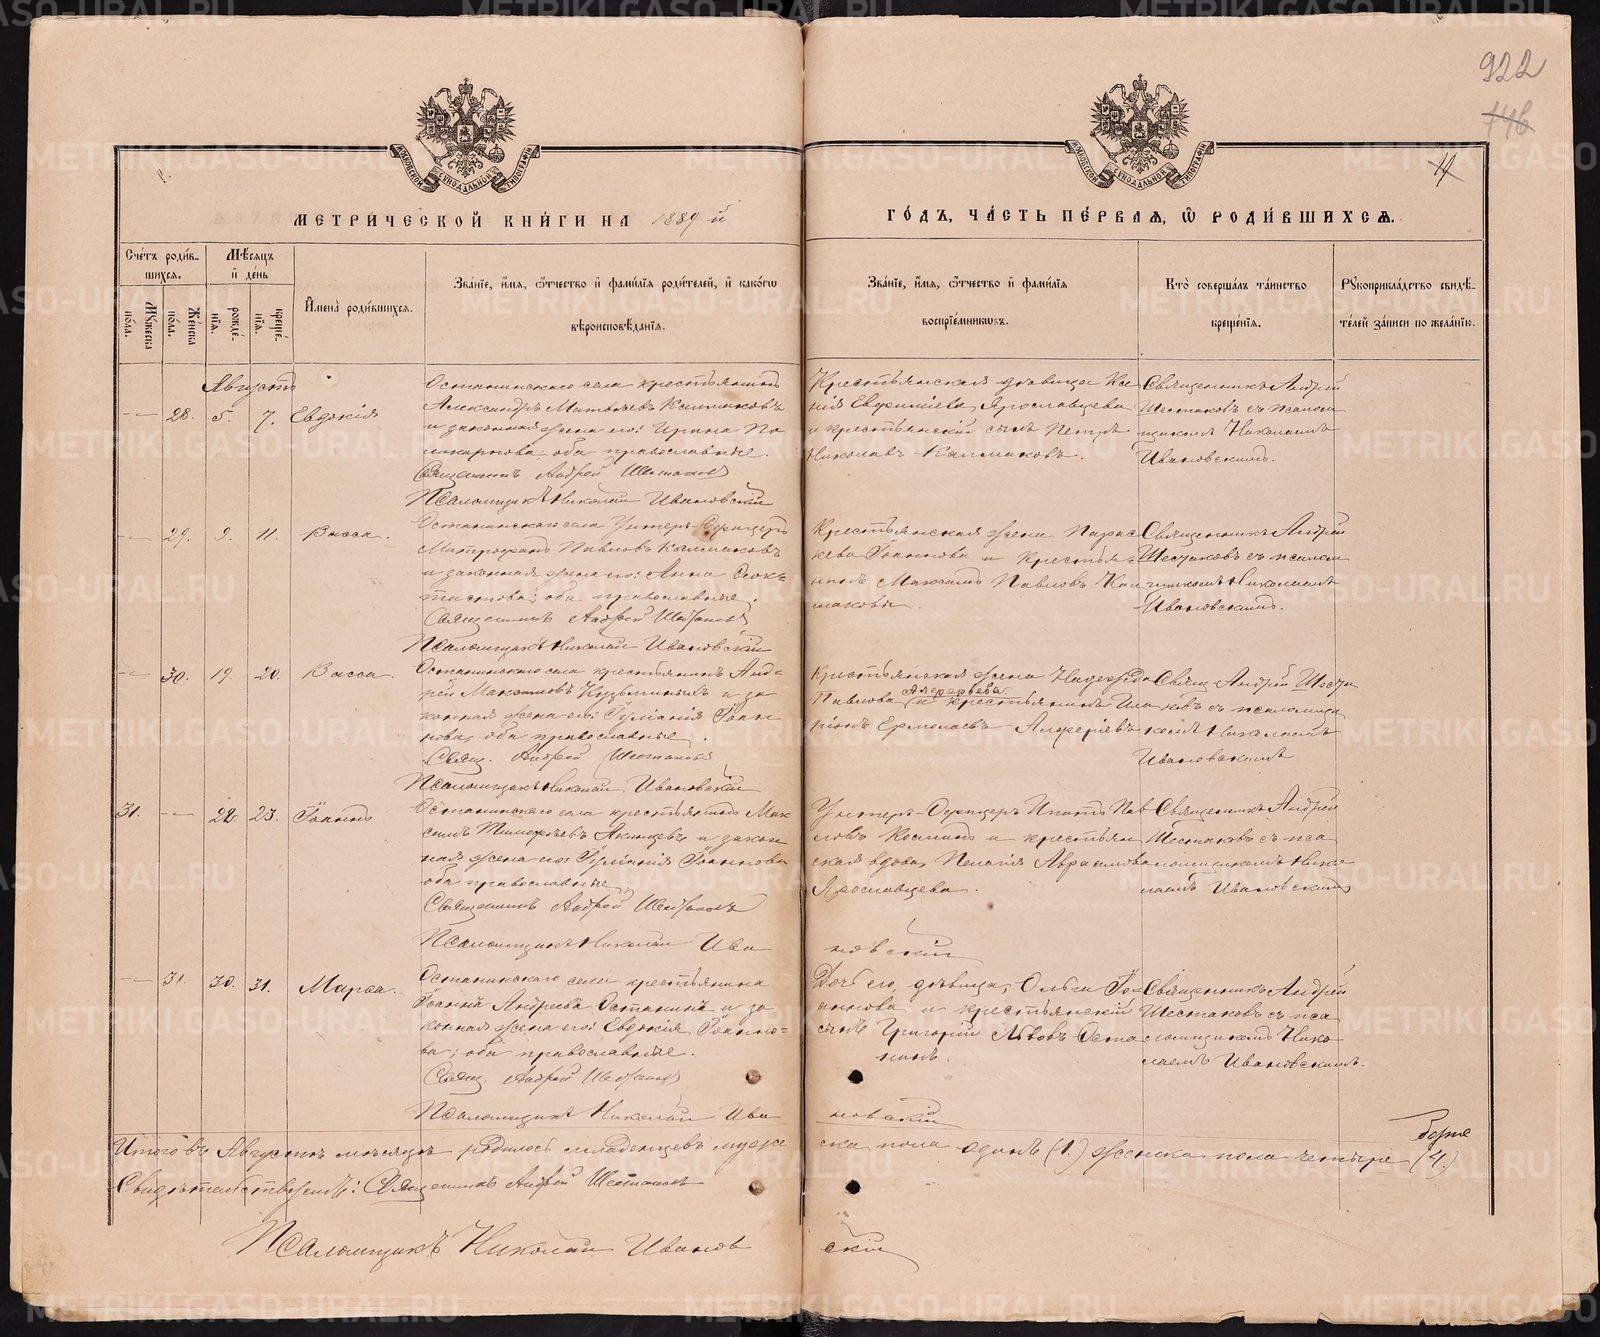 922
146
14
МОСКОВСКОЙ СѴНОДАЛЬНОЙ ТИПОГРАФІИ
МОСКОВСКОЙ СѴНОДАЛЬНОЙ ТИПОГРАФІИ
МЕТРИ́ЧЕСКОЙ КНИ́ГИ НА 1889 й
ГО́ДЪ, ЧА́СТЬ ПЕ́РВАЯ, Ѽ РОДИ́ВШИХСЯ.
Сче́тъ роди́вшихся.
Му́жеска по́ла.
Же́нска по́ла.
Мѣ́сяцъ и҆ де́нь
рожде́нїя.
креще́нїя.
И҆мена̀ роди́вшихся.
Зва́нїе, и҆́мя, ѻ҆́тчество и҆ фами́лїя роди́телей, и҆ како́гѡ
вѣроисповѣ́данїя.
Зва́нїе, и҆́мя, ѻ҆́тчество и҆ фами́лїя
воспрїе́мникѡвъ.
Кто̀ соверша́лъ та́инство
креще́нїя.
Рꙋкоприкла́дство свидѣ́-
телей за́писи по жела́нїю.
Августъ
28. 5. 7. Евдокія
Останинскаго села крестьянинъ
Александръ Матвѣевъ Калмаковъ
и законная жена его: Ирина По
ликарпова оба православные.
Священникъ Андрей Шестаковъ
Псаломщикъ Николай Ивановскій
Крестьянская дѣвица Ксе
нія Евфиміева Ярославцева
и крестьянскій сынъ Петръ
Николаевъ Калмаковъ.
Священникъ Андрей
Шестаковъ съ псалом
щикомъ Николаемъ
Ивановскимъ.
29. 9. 11. Васса.
Останинскаго села Унтеръ-Офицеръ
Митрофанъ Павловъ Калмаковъ
и законная жена его: Анна Ѳеок=
тистова; оба православные.
Священникъ Андрей Шестаковъ
Псаломщикъ Николай Ивановскій
Крестьянская жена Парас
кева Іоаннова и крестья=
нинъ Максимъ Павловъ Кал
маковы.
Священникъ Андрей
Шестаковъ съ псалом
щикомъ Николаемъ
Ивановскимъ.
30. 19. 20. Васса.
Останинскаго села крестьянинъ Анд=
рей Максимовъ Кузьминыхъ и за
конная жена его: Іуліанія Іоан
нова, оба православные.
Свящ. Андрей Шестаковъ
Псаломщикъ Николай Ивановскій
Крестьянская жена Надежда
Алферьева
Павлова и крестьянинъ Ила
ріонъ Ермолаевъ Алферіевъ
Свящ. Андрей Шеста
ковъ съ псаломщи
комъ Николаемъ
Ивановскимъ
31. 22. 23. Іоаннъ
Останинскаго села крестьянинъ Мак
симъ Тимофѣевъ и закон
ная жена его: Іуліанія Іоаннова
оба православные.
Священникъ Андрей Шестаковъ
Псаломщикъ Николай Ива
новскій
Унтеръ-Офицеръ Ипатъ Пав
ловъ и крестьян
ская вдова, Пелагія Авраамова
Ярославцева.
Священникъ Андрей
Шестаковъ съ пса
ломщикомъ Нико
лаемъ Ивановскимъ
31. 30. 31. Марѳа.
Останинскаго села крестьянина
Іоаннъ Андреевъ Останинъ и за
конная жена его: Евдокія Іоанно=
ва; оба православные.
Свящ. Андрей Шестаковъ
Псаломщикъ Николай Ива
новскій
Дочь его, дѣвица, Ольга Іо=
аннова и крестьянскій
сынъ Григорій Львовъ Оста
нинъ.
Священникъ Андрей
Шестаковъ съ пса
ломщикомъ Нико
лаемъ Ивановскимъ.
Итого въ Августѣ мѣсяцѣ родилось младенцевъ муже
ска пола одинъ (1.) женска пола четыре (4.)
Свидѣтельствуемъ: Священникъ Андрей Шестаковъ
Псаломщикъ Николай Иванов
скій
METRIKI.GASO-URAL.RU